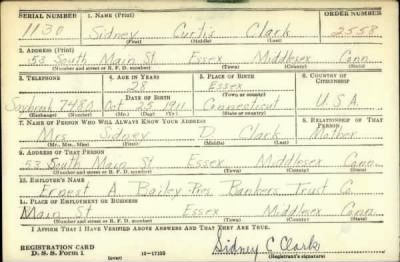 SERIAL NUMBER 1. NAME (Print) ORDER NUMBER
1130 Sidney Curtis Clark 2558
(First) (Middle) (Last)
2. ADDRESS (Print)
53 South Main St Essex Middlesex Conn
(Number and street or R. F. D. number) (Town) (County) (State)
3. TELEPHONE 4. AGE IN YEARS 5. PLACE OF BIRTH 6. COUNTRY OF CITIZENSHIP
28 Essex
(Town or county)
Saybrook 748 Oct 25 1911 Connecticut U.S.A.
(Exchange) (Number) (Mo.) (Day) (Yr.) (State or country)
7. NAME OF PERSON WHO WILL ALWAYS KNOW YOUR ADDRESS 8. RELATIONSHIP OF THAT PERSON
Mrs. Sidney D. Clark Mother
(Mr., Mrs., Miss) (First) (Middle) (Last)
9. ADDRESS OF THAT PERSON
53 South Main St Essex Middlesex Conn
(Number and street or R. F. D. number) (Town) (County) (State)
10. EMPLOYER'S NAME
Ernest A Bailey Pres Bankers Trust Co
11. PLACE OF EMPLOYMENT OR BUSINESS
Main St Essex Middlesex Conn
(Number and street or R. F. D. number) (Town) (County) (State)
I AFFIRM THAT I HAVE VERIFIED ABOVE ANSWERS AND THAT THEY ARE TRUE.
REGISTRATION CARD
D. S. S. Form 1 (over) 16-17105 Sidney C Clark
(Registrant's signature)